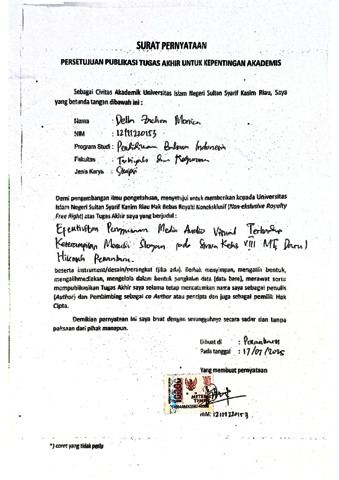 SURAT PERNYATAAN
PERSETUJUAN PUBLIKASI TUGAS AKHIR UNTUK KEPENTINGAN AKADEMIS
Sebagai Civitas Akademik Universitas Islam Negeri Sultan Syarif Kasim Riau, Saya
yang bertanda tangan dibawah ini :
Nama : Della
NIM :
Program Studi : Pendidikan Bahasa Indonesia
Fakultas : Tarbiyah dan Keguruan
Jenis Karya : Skripsi
Demi pengembangan ilmu pengetahuan, menyetujui untuk memberikan kepada Universitas
Islam Negeri Sultan Syarif Kasim Riau Hak Bebas Royalti Noneksklusif (Non-exclusive Royalty
Free Right) atas Tugas Akhir saya yang berjudul :
Efektivitas Penggunaan Media Audio Visual Terhadap
Keterampilan Menulis Slogan pada Siswa Kelas VIII MTs Darul
Hikmah Pekanbaru
beserta instrument/desain/perangkat (jika ada). Berhak menyimpan, mengalih bentuk,
mengalihmediakan, mengelola dalam bentuk pangkalan data (data base), merawat serta
mempublikasikan Tugas Akhir saya selama tetap mencantumkan nama saya sebagai penulis
(Author) dan Pembimbing sebagai co Author atau pencipta dan juga sebagai pemilik Hak
Cipta.
Demikian pernyataan ini saya buat dengan sesungguhnya secara sadar dan tanpa
paksaan dari pihak manapun.
Dibuat di : Pekanbaru
Pada tanggal : 17/07/2025
Yang membuat pernyataan
10000
METERAI
TEMPEL
NIM:
*) coret yang tidak perlu